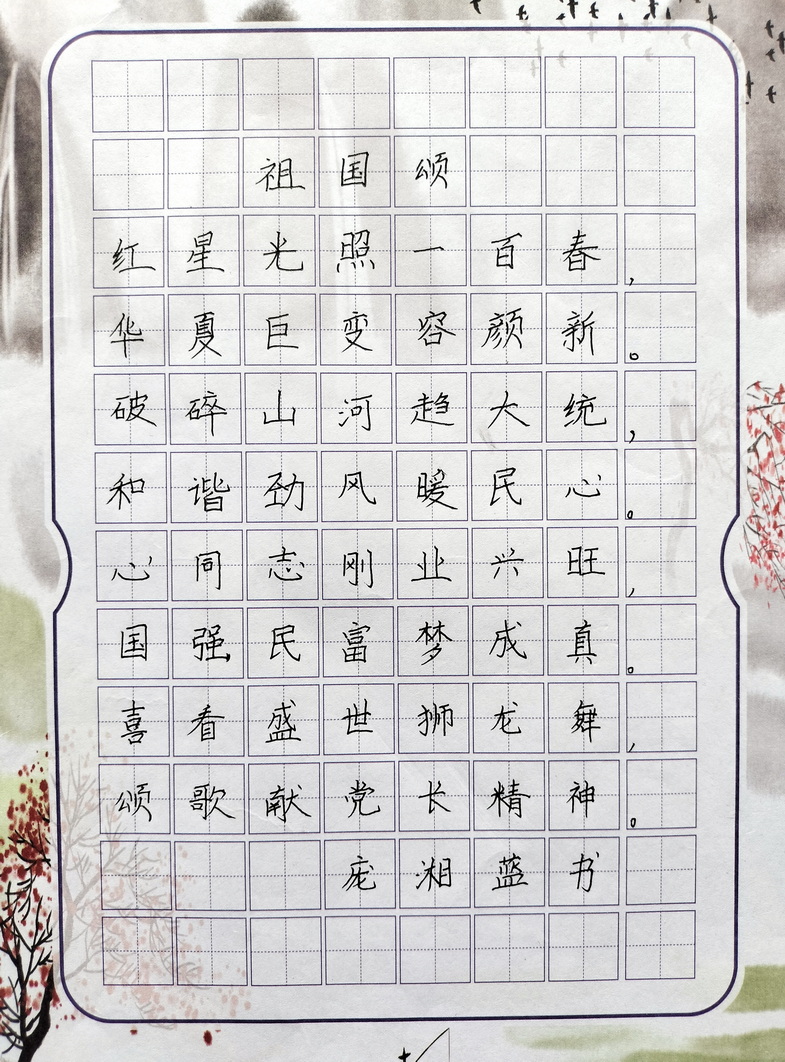 祖国颂
红星光照一百春，
华夏巨变容颜新。
破碎山河趋大统，
和谐劲风暖民心。
心同志刚业兴旺，
国强民富梦成真。
喜看盛世狮龙舞，
颂歌献党长精神。
庞湘蓝书